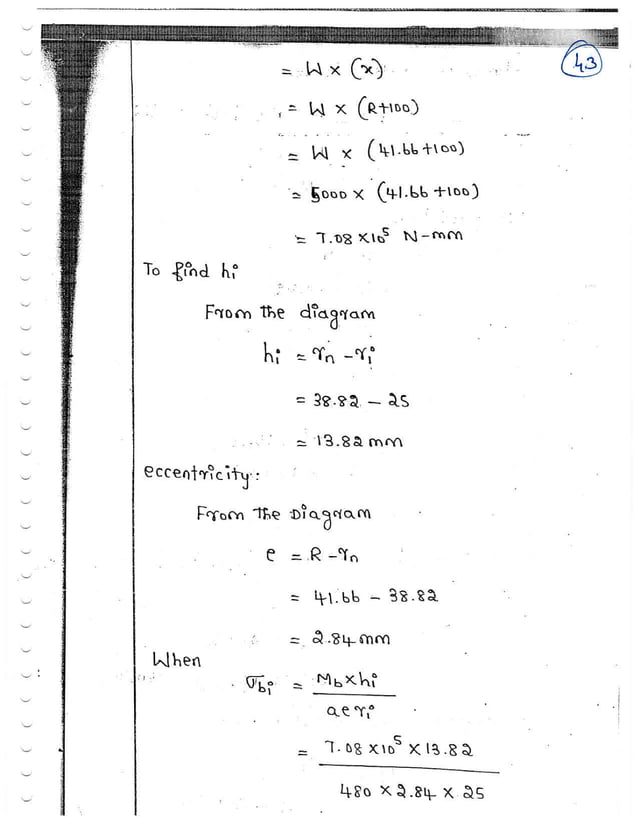 43
= W × (x)
= W × (R+100)
= W × (41.66+100)
= 5000 × (41.66+100)
= 7.08 × 10⁵ N-mm
To find hᵢ
From the diagram
hᵢ = rₙ - rᵢ
= 38.82 - 25
= 13.82 mm
eccentricity:
From the Diagram
e = R - rₙ
= 41.66 - 38.82
= 2.84 mm
When
σbᵢ = Mb × hᵢ / a e rᵢ
= 7.08 × 10⁵ × 13.82 / 480 × 2.84 × 25